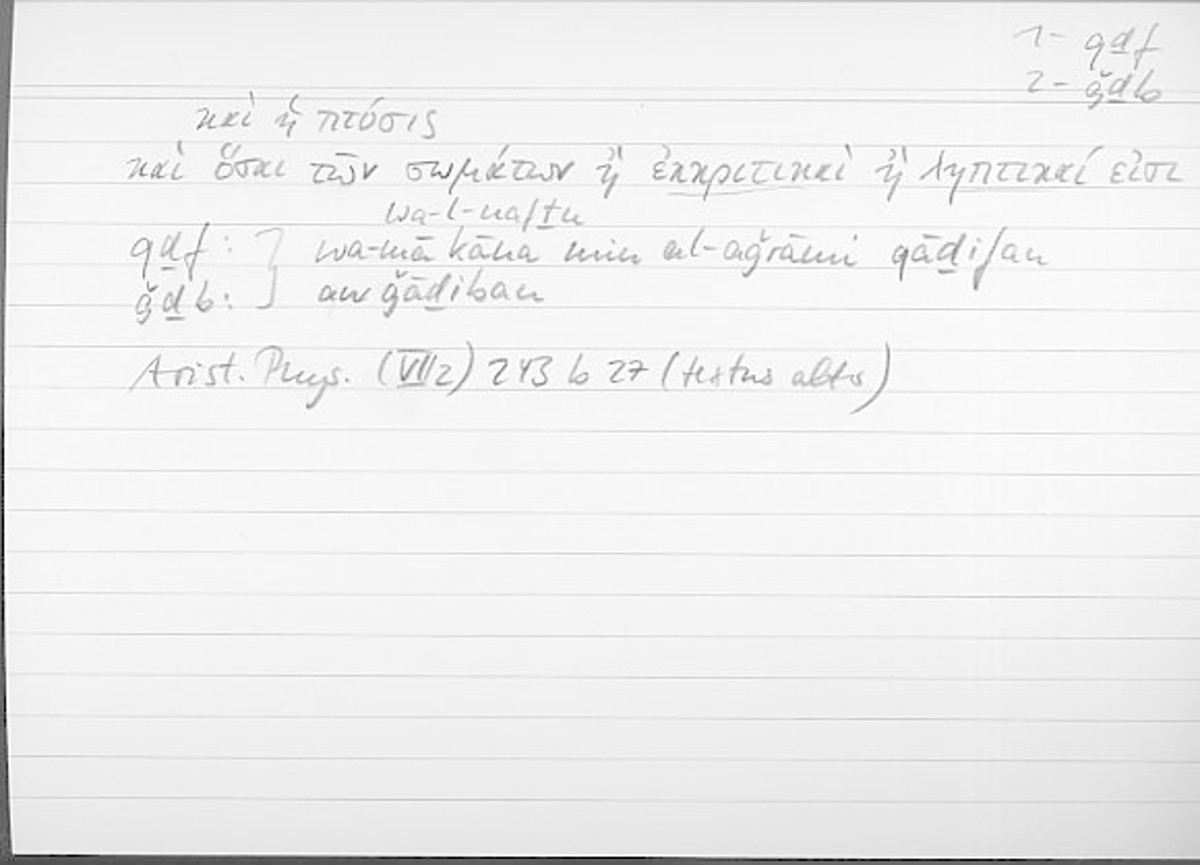 1- qḏf
2- ǧḏb
καὶ ἡ πτύσις
καὶ ὅσαι τῶν σωμάτων ἢ ἐκκριτικαὶ ἢ ληπτικαί εἰσι
wa-l-nafṯu
qḏf: } wa-mā kāna min al-aǧrāmi qāḏifan
ǧḏb: } aw ǧāḏiban
Arist. Phys. (VII2) 243 b 27 (textus alter)